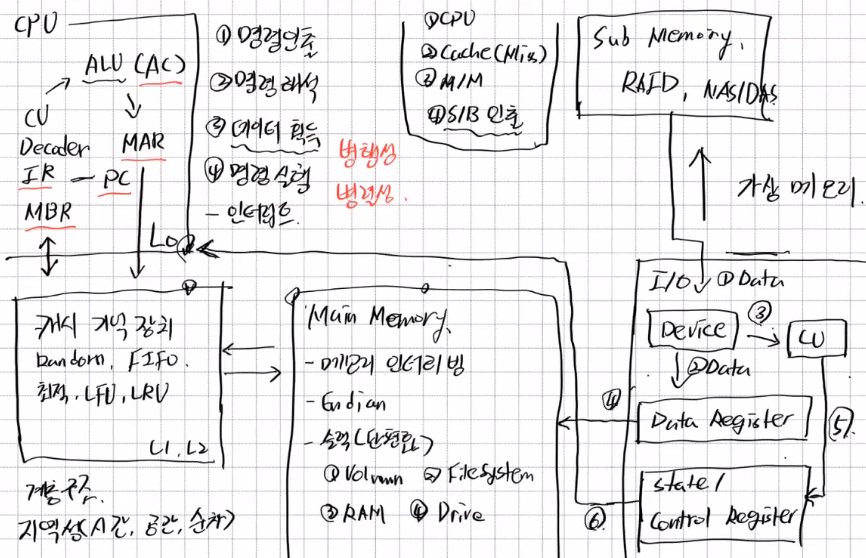 CPU
ALU (AC)
CU
Decoder
IR - PC
MBR
MAR
L0
① 명령인출
② 명령 해석
③ 데이터 획득
④ 명령 실행
- 인터럽트.
병행성
병렬성.
① CPU
② Cache(Miss)
③ M/M
④ S/B 인출
Sub Memory,
RAID, NAS/DAS
가상 메모리.
캐시 기억 장치
Random, FIFO.
최적, LFU, LRU
L1, L2
계층구조.
지역성(시간, 공간, 순차)
Main Memory,
- 메모리 인터리빙
- Endian
① Volumn ② Filesystem
③ RAM ④ Drive
I/O ① Data
Device ③ CU
② Data
④ Data Register
⑤
State/
Control Register
⑥